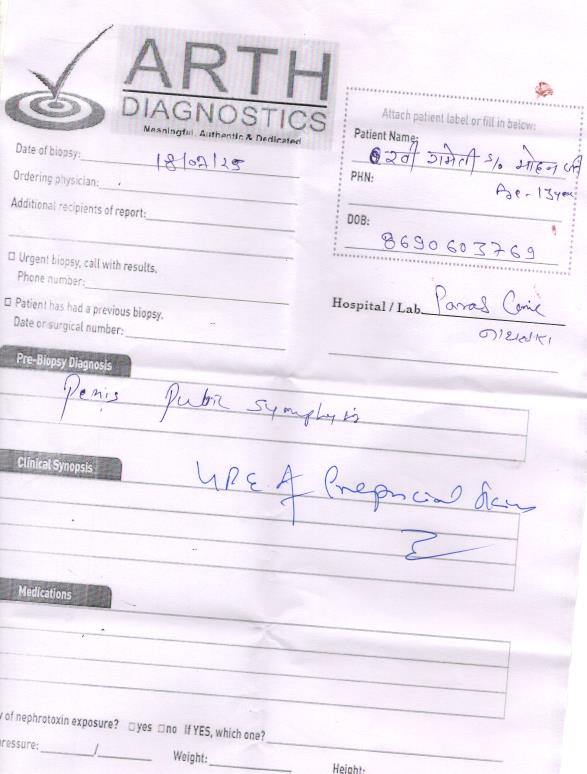 ARTH
DIAGNOSTICS
Meaningful, Authentic & Dedicated
Attach patient label or fill in below:
Patient Name:
रवी गमेती S/o मोहन जी
PHN:
Age - 13 year
DOB:
8690603769
Date of biopsy: 18/02/25
Ordering physician:
Additional recipients of report:
☐ Urgent biopsy, call with results.
Phone number:
☐ Patient has had a previous biopsy.
Date or surgical number:
Hospital / Lab Paras
Pre-Biopsy Diagnosis
Penis Pubic Symphysis
Clinical Synopsis
HPE of Prepucial Skin
Medications
y of nephrotoxin exposure? ☐yes ☐no If YES, which one?
ressure: / Weight: Height: